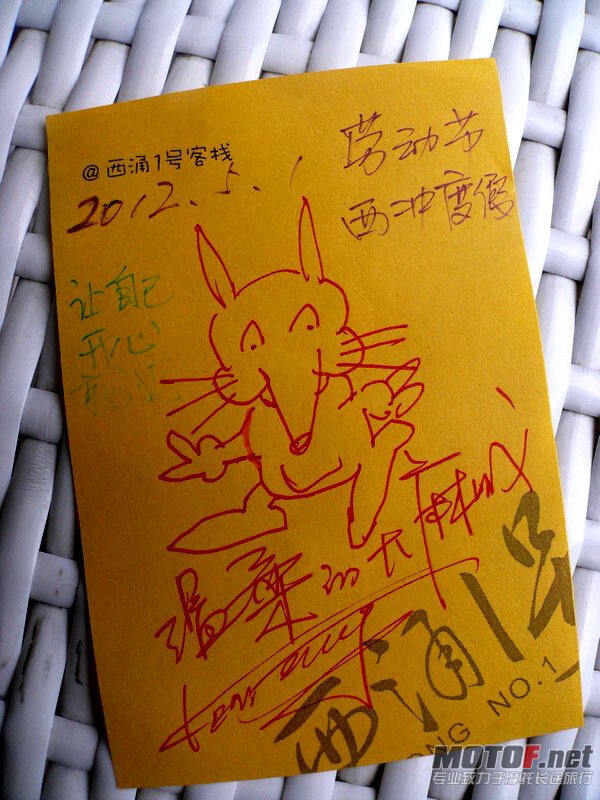 @西涌1号客栈
2012.5.1
劳动节
西冲度假
让自己
开心
温柔的大麻
西涌1号
ONG NO.1
MOTOF.net
专业致力于摩托长途旅行